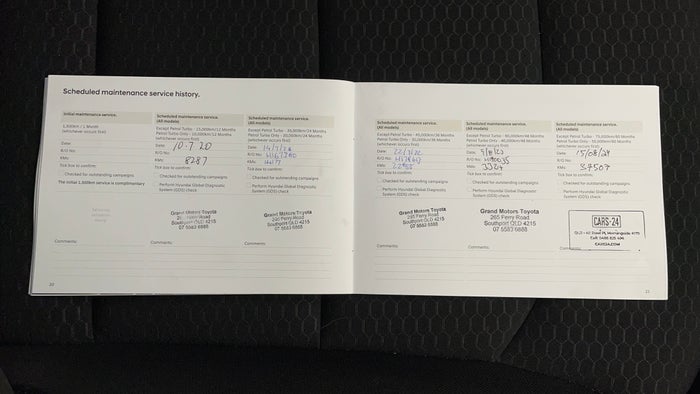 Scheduled maintenance service history.
Initial maintenance service.
1,500km / 1 Month
(whichever occurs first)
Date:
R/O No:
KMs:
Tick box to confirm:
Checked for outstanding campaigns
The initial 1,500km service is complimentary
Comments:
Scheduled maintenance service.
(All models)
Except Petrol Turbo - 15,000km/12 Months
Petrol Turbo Only - 10,000km/12 Months
(whichever occurs first)
Date: 10-7-20
R/O No:
KMs: 8287
Tick box to confirm:
Checked for outstanding campaigns
Perform Hyundai Global Diagnostic
System (GDS) check
Grand Motors Toyota
Southport QLD 4215
07 5583 6888
Comments:
Scheduled maintenance service.
(All models)
Except Petrol Turbo - 30,000km/24 Months
Petrol Turbo Only - 20,000km/24 Months
(whichever occurs first)
Date:
R/O No:
KMs:
Tick box to confirm:
Checked for outstanding campaigns
Perform Hyundai Global Diagnostic
System (GDS) check
Grand Motors Toyota
265 Ferry Road
Southport QLD 4215
07 5583 6888
Comments:
20
Scheduled maintenance service.
(All models)
Except Petrol Turbo - 45,000km/36 Months
Petrol Turbo Only - 30,000km/36 Months
(whichever occurs first)
Date:
R/O No:
KMs:
Tick box to confirm:
Checked for outstanding campaigns
Perform Hyundai Global Diagnostic
System (GDS) check
Grand Motors Toyota
265 Ferry Road
Southport QLD 4215
07 5583 6888
Comments:
Scheduled maintenance service.
(All models)
Except Petrol Turbo - 60,000km/48 Months
Petrol Turbo Only - 40,000km/48 Months
(whichever occurs first)
Date:
R/O No:
KMs:
Tick box to confirm:
Checked for outstanding campaigns
Perform Hyundai Global Diagnostic
System (GDS) check
Grand Motors Toyota
265 Ferry Road
Southport QLD 4215
07 5583 6888
Comments:
Scheduled maintenance service.
(All models)
Except Petrol Turbo - 75,000km/60 Months
Petrol Turbo Only - 50,000km/60 Months
(whichever occurs first)
Date: 15/08/24
R/O No:
KMs: 37507
Tick box to confirm:
Checked for outstanding campaigns
Perform Hyundai Global Diagnostic
System (GDS) check
CARS 24
CARS24.COM
Comments:
21